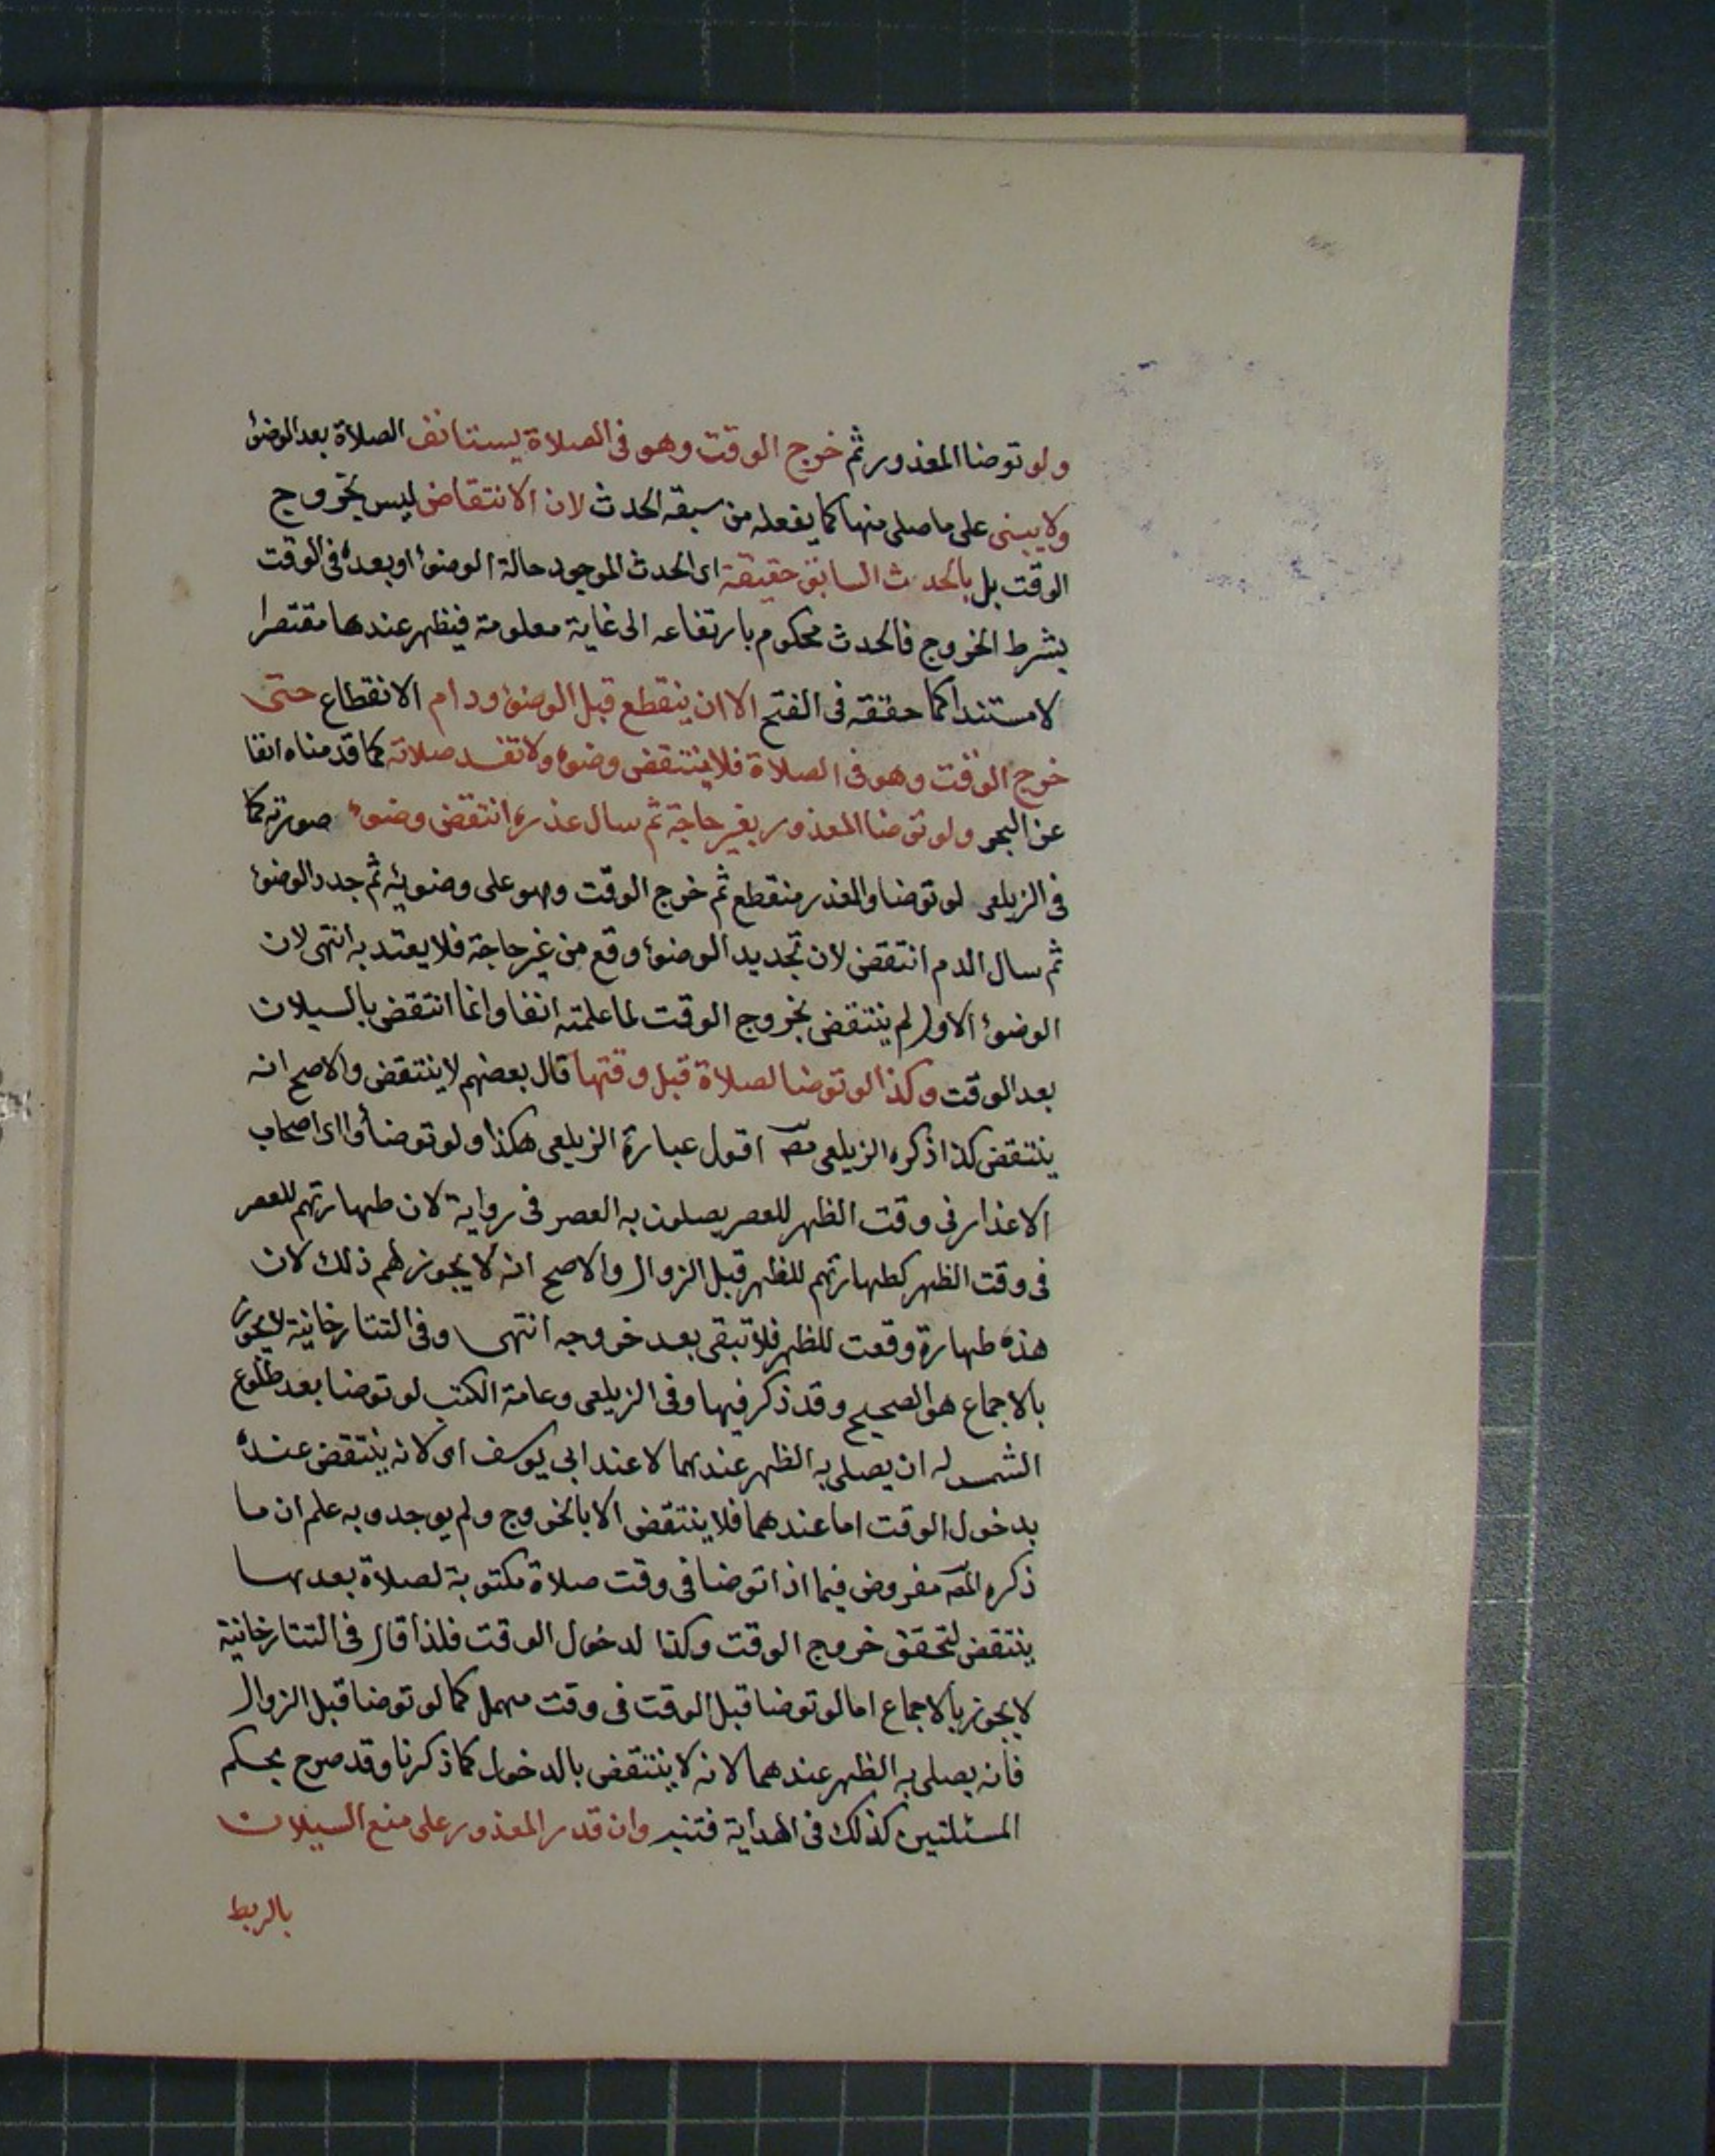 ولو توضا المعذور ثم خرج الوقت وهو فى الصلاة يستانف الصلاة بعد الوضوٴ
ولا يبنى على ما صلى منها كما يفعله من سبقه الحدث لان الانتقاض ليس بخروج
الوقت بل بالحدث السابق حقيقة اى الحدث الموجود حالة الوضوٴ او بعده فى الوقت
بشرط الخروج فالحدث محكوم بارتفاعه الى غاية معلومة فيظهر عندها مقتصرا
لا مستندا كما حققه فى الفتح الا ان ينقطع قبل الوضوٴ ودام الانقطاع حتى
خرج الوقت وهو فى الصلاة فلا ينتقض وضوٴه ولا تفسد صلاته كما قدمناه انفا
عن البحر ولو توضا المعذور بغير حاجة ثم سال عذره انتقض وضوٴه صورته كما
فى الزيلعى لو توضا والعذر منقطع ثم خرج الوقت وهو على وضوئه ثم جدد الوضوٴ
ثم سال الدم انتقض لان تجديد الوضوٴ وقع من غير حاجة فلا يعتد به انتهى لان
الوضوٴ الاول لم ينتقض بخروج الوقت لما علمته انفا وانما انتقض بالسيلان
بعد الوقت وكذا لو توضا لصلاة قبل وقتها قال بعضهم لا ينتقض والاصح انه
ينتقض كذا ذكره الزيلعى مصـ اقول عبارة الزيلعى هكذا ولو توضأوا اى اصحاب
الاعذار فى وقت الظهر للعصر يصلون به العصر فى رواية لان طهارتهم للعصر
فى وقت الظهر كطهارتهم للظهر قبل الزوال والاصح انه لا يجوز لهم ذلك لان
هذه طهارة وقعت للظهر فلا تبقى بعد خروجه انتهى وفى التتارخانية لا يجوز
بالاجماع هو الصحيح وقد ذكر فيها وفى الزيلعى وعامة الكتب لو توضا بعد طلوع
الشمس له ان يصلى به الظهر عندهما لا عند ابى يوسف اى لانه ينتقض عنده
بدخول الوقت اما عندهما فلا ينتقض الا بالخروج ولم يوجد وبه علم ان ما
ذكره المصـ مفروض فيما اذا توضا فى وقت صلاة مكتوبة لصلاة بعدها
ينتقض لتحقق خروج الوقت وكذا لدخول الوقت فلذا قال فى التتارخانية
لا يجوز بالاجماع اما لو توضا قبل الوقت فى وقت مهمل كما لو توضا قبل الزوال
فانه يصلى به الظهر عندهما لانه لا ينتقض بالدخول كما ذكرنا وقد صرح بحكم
المسئلتين كذلك فى الهداية فتنبه وان قدر المعذور على منع السيلان
بالربط